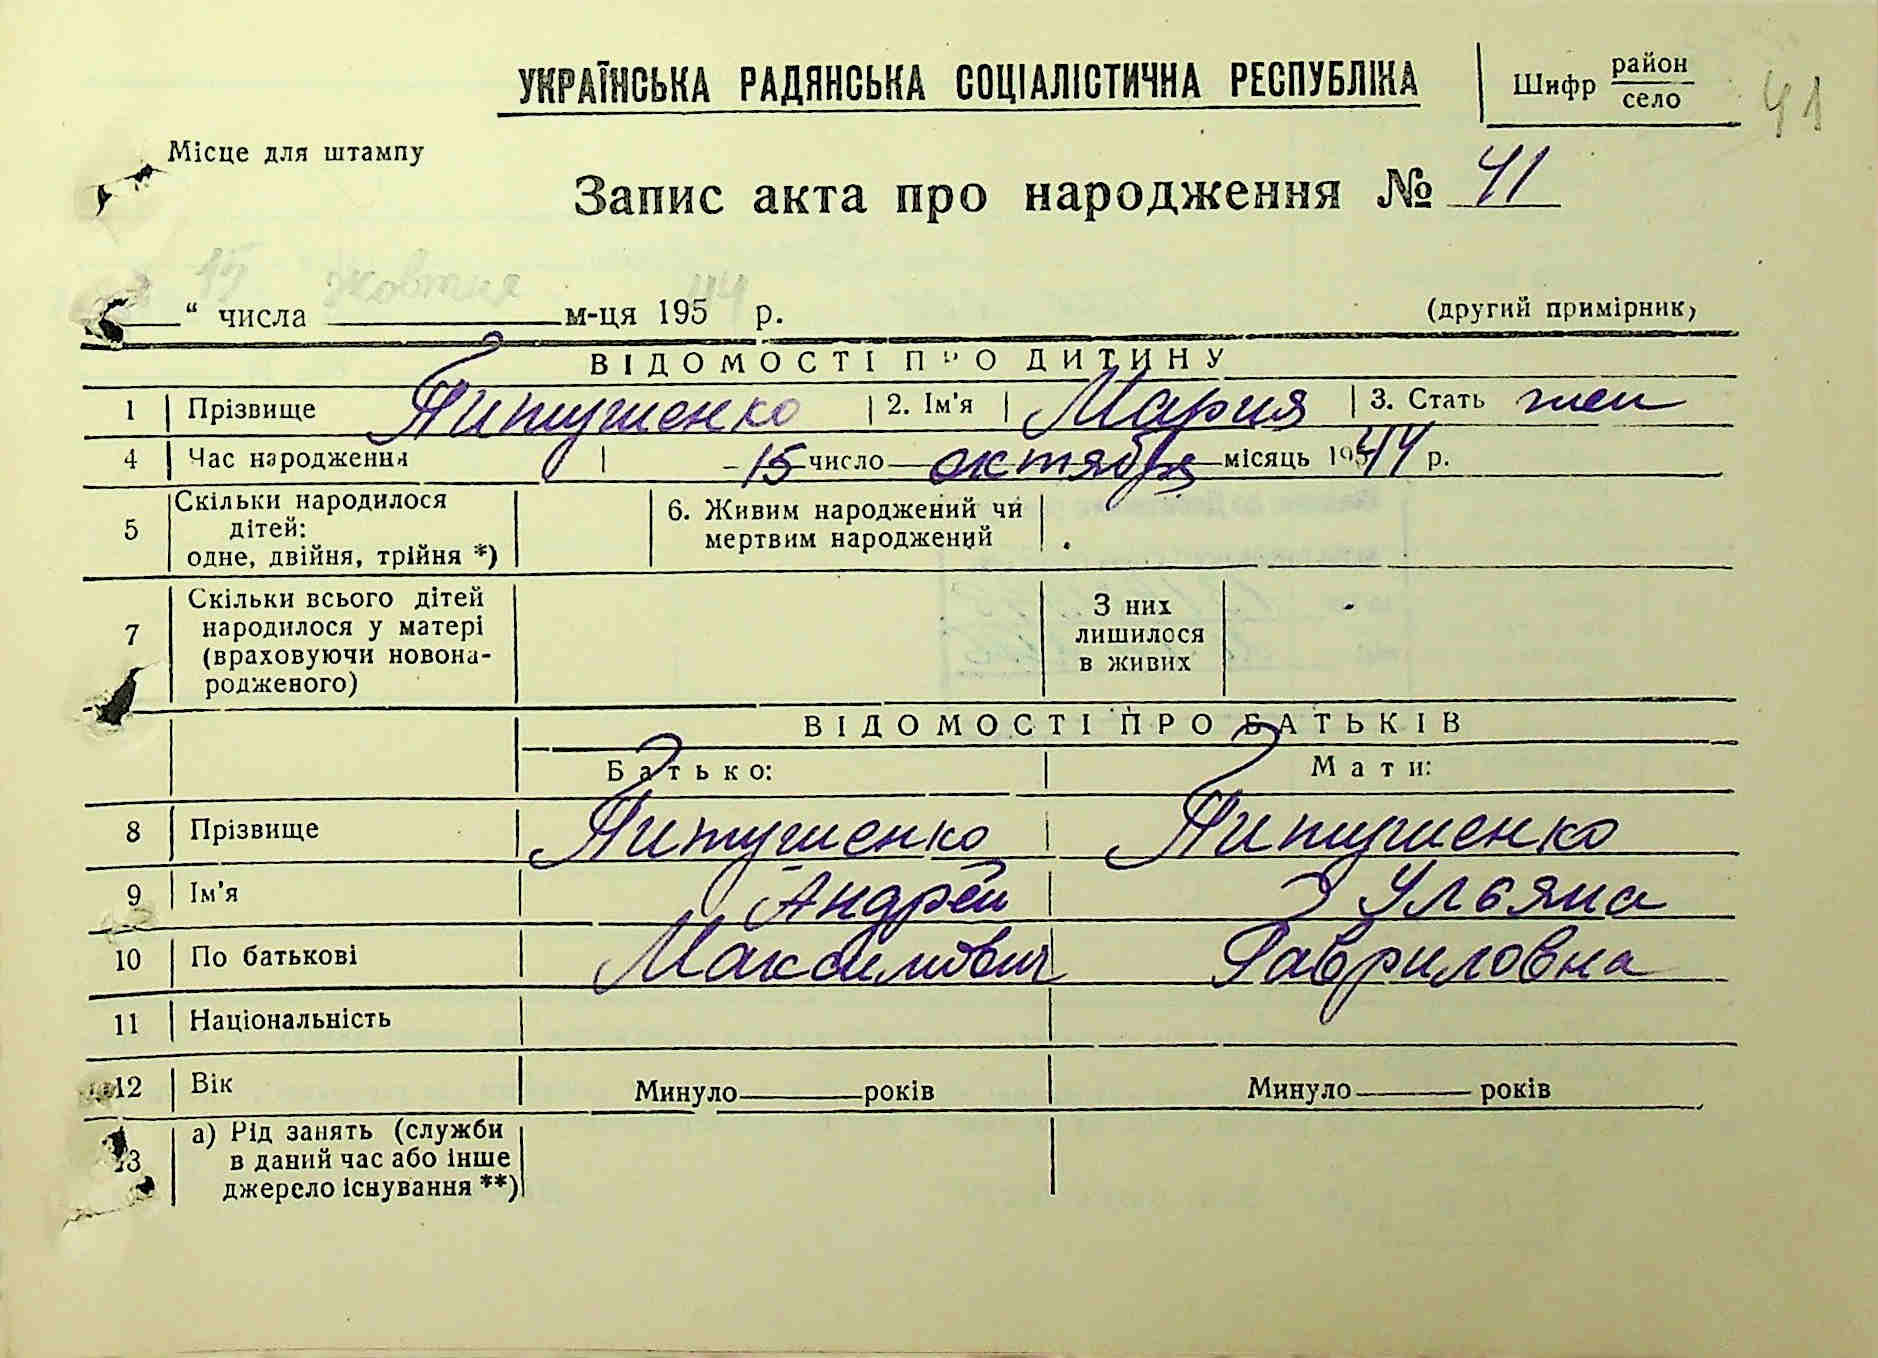 УКРАЇНСЬКА РАДЯНСЬКА СОЦІАЛІСТИЧНА РЕСПУБЛІКА
Шифр район село
41
Місце для штампу
Запис акта про народження № 41
15 жовтня 44
“ числа м-ця 195 р.
(другий примірник)
ВІДОМОСТІ ПРО ДИТИНУ
1 Прізвище Питушенко 2. Ім'я Мария 3. Стать жен
4 Час народження 15 число октября місяць 1944 р.
5 Скільки народилося дітей: одне, двійня, трійня *) 6. Живим народжений чи мертвим народжений
7 Скільки всього дітей народилося у матері (враховуючи новонародженого) З них лишилося в живих
ВІДОМОСТІ ПРО БАТЬКІВ
Батько: Мати:
8 Прізвище Питушенко Питушенко
9 Ім'я Андрей Ульяна
10 По батькові Максимович Гавриловна
11 Національність
12 Вік Минуло років Минуло років
13 а) Рід занять (служби в даний час або інше джерело існування **)